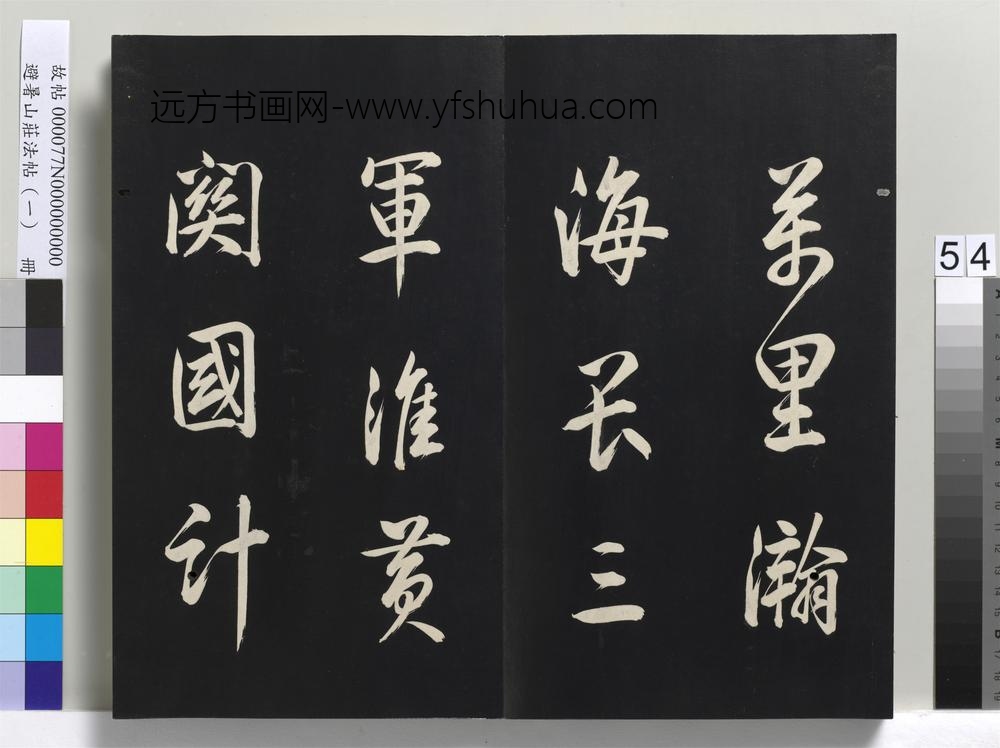 远方书画网-www.yfshuhua.com
萬里瀚
海長三
軍淮黃
關國計
故帖 000077N000000000
避暑山莊法帖（一） 冊
54